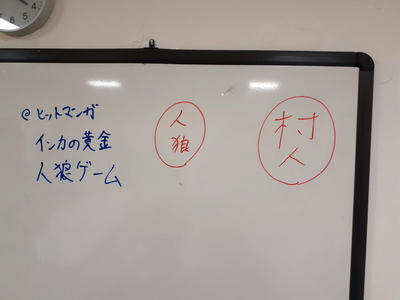 @ヒットマンガ
インカの黄金
人狼ゲーム
人
狼
村
人